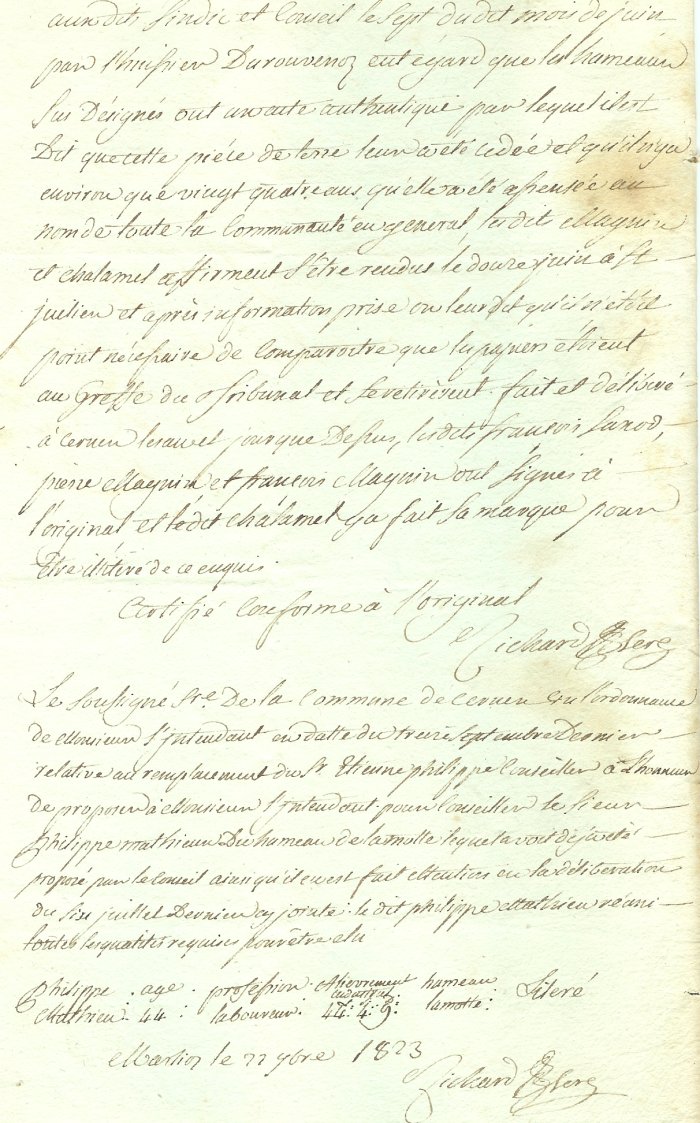 auxdits sindic et Conseil le sept dudit mois de juin
par l'huissier Durouvenoz eut égard que les hameaux
sus Désignés ont un acte authentique par lequel il est
Dit que cette piéce de terre leur a été cedée et qu'il n'y a
environ que vingt quatre ans qu'elle a été assensée au
nom de toute la Communauté en general, les dits Magnin
et chalamel affirment s'être rendus le douze juin à St
julien et après information prise on leur dit qu'il n'étoit
point nécessaire de Comparoitre que les papiers étoient
au Greffe du Tribunal et se retirèrent. fait et délibéré
à Cernex les an et jour que Dessus, les dits françois Sunod,
pierre Magnin et françois Magnin ont signés à
l'original et ledit chalamel y a fait sa marque pour
Etre illitéré de ce enquis
Certifié Conforme à l'original
Richard Sre
Le soussigné Sre. De la Commune de Cernex vu l'ordonnance
de Monsieur l'Intendant en datte du treize septembre Dernier
relative au remplacement du Sr Etienne philippe Conseiller à l'honneur
de proposer à Monsieur l'intendant pour Conseiller le sieur
philippe mathieu Du hameau de lamotte lequel avoit déjà été
proposé par le Conseil ainsi qu'il en est fait Mention en la déliberation
du six juillet Dernier cy jointe: le dit philippe Mathieu réuni
toutes les qualités requises pour être elu
philippe . age . profession . Allivrement hameau
Mathieu . 44 : laboureur : 44: 4: 8: lamotte : Literé
Marlioz le 22 9bre 1823
Richard Sre